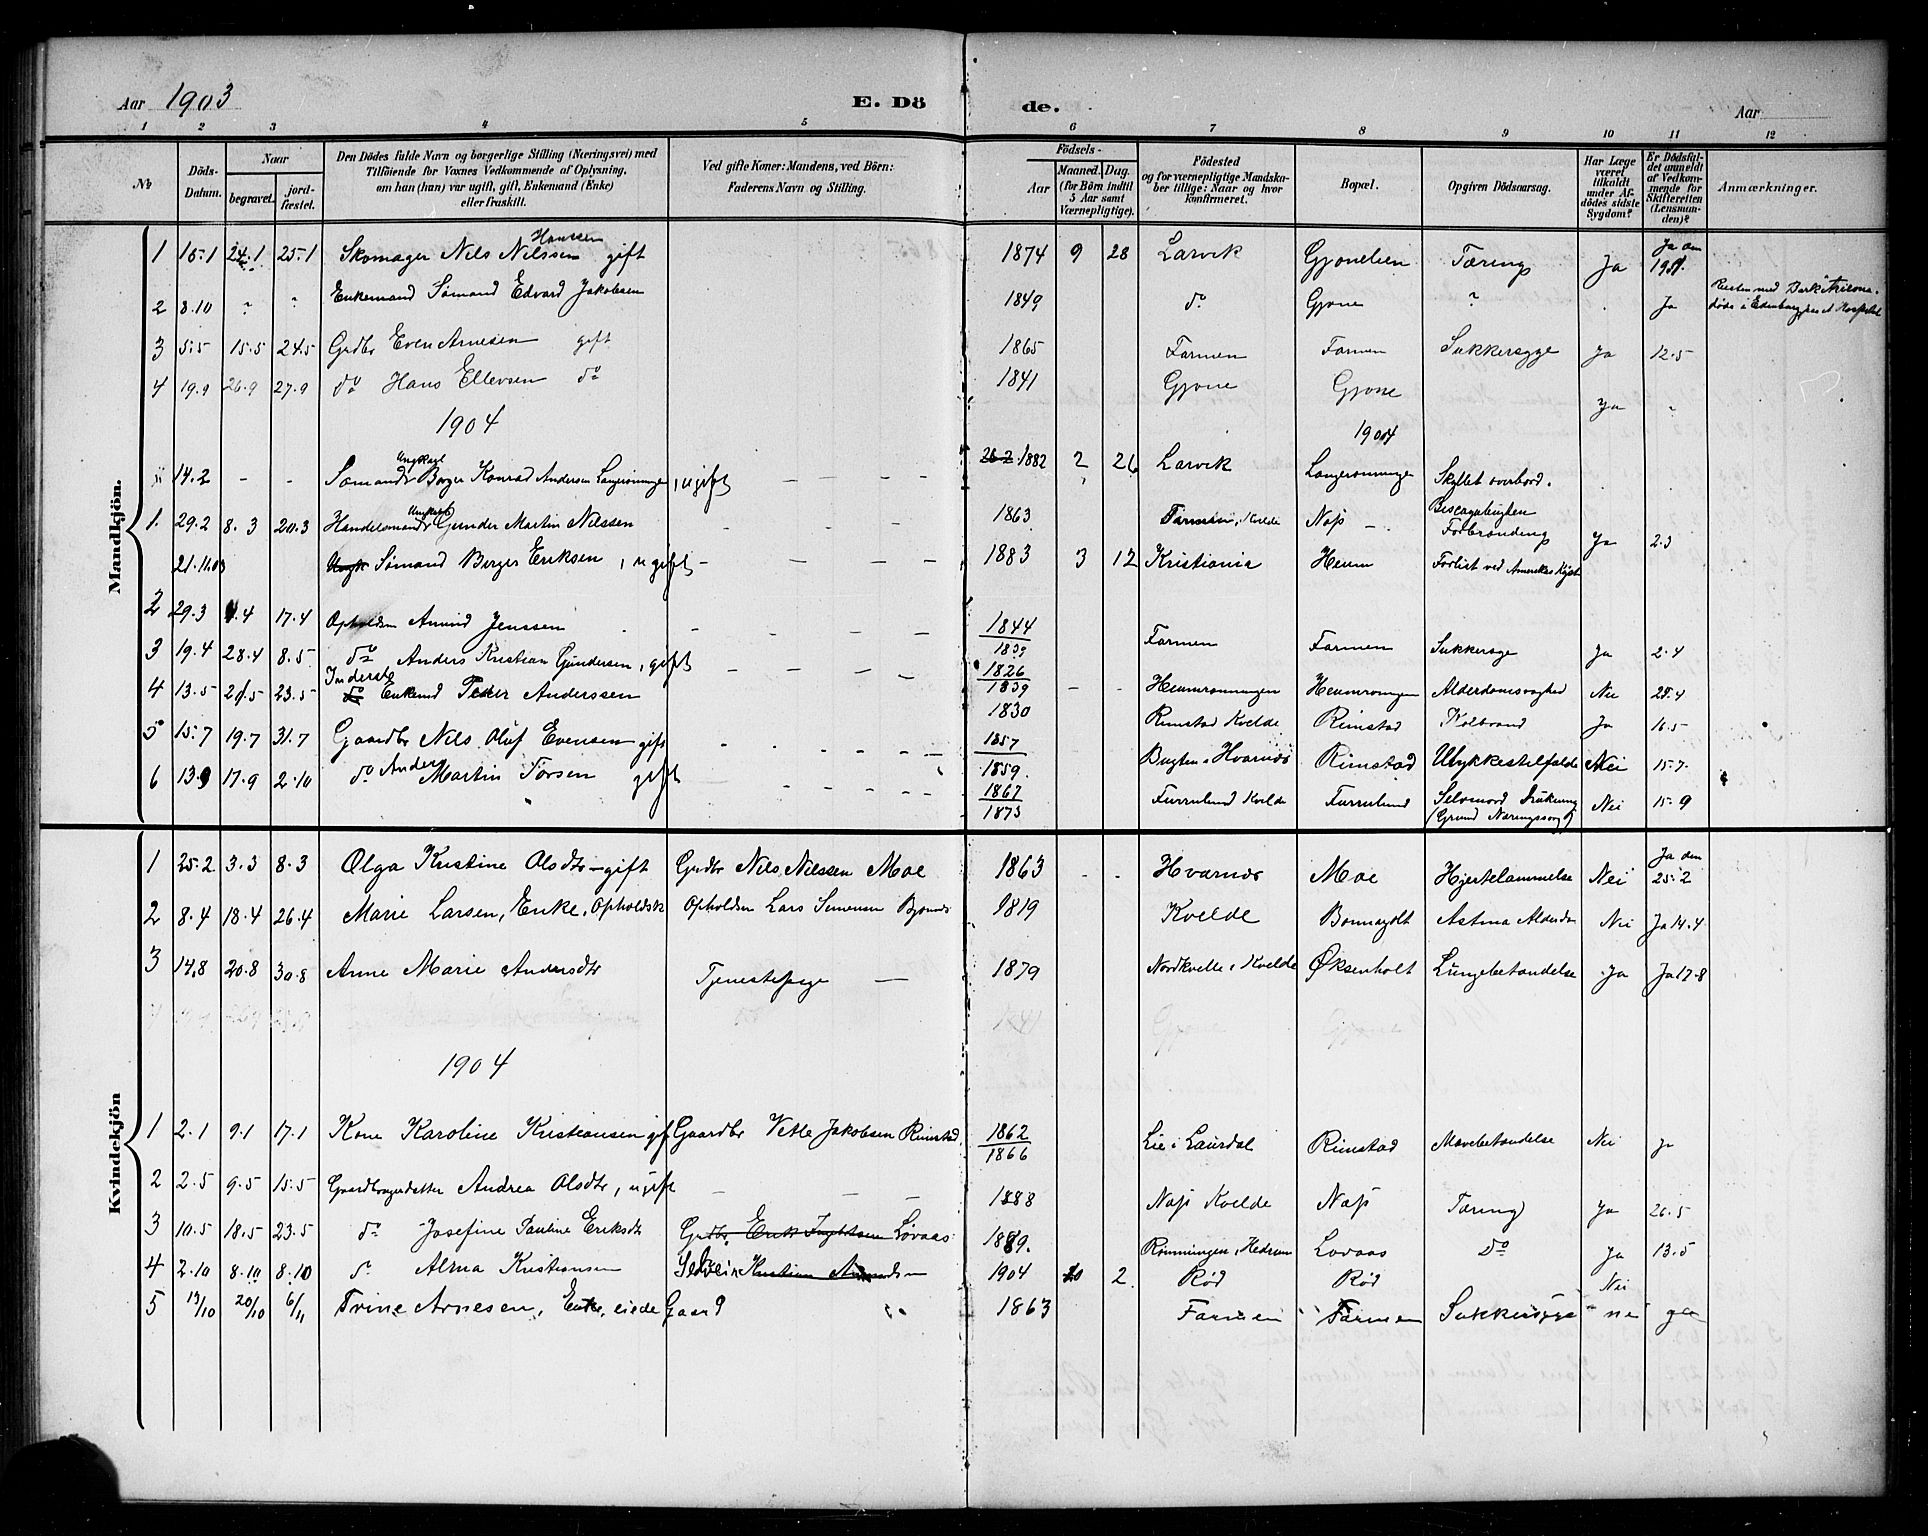 Aar 1903
E. Dö
de.
Aar
1 2 3 4 5 6 7 8 9 10 11 12
№
Döds-Datum.
Naar
begravet.
jord-fæstet.
Den Dödes fulde Navn og borgerlige Stilling (Næringsvei) med
Tilföiende for Voxnes Vedkommende af Oplysning,
om han (hun) var ugift, gift, Enkemand (Enke)
eller fraskilt.
Ved gifte Koner: Mandens, ved Börn:
Faderens Navn og Stilling.
Födsels-
Aar
Maaned. Dag.
(for Börn indtil
5 Aar samt
Værnepligtige).
Födested
og for værnepligtige Mandska-
ber tillige: Naar og hvor
konfirmeret.
Bopæl.
Opgiven Dödsaarsag.
Har Læge
været
tilkaldt
under Af-
dödes sidste
Sygdom?
Er Dödsfal-
det anmeldt
af Vedkom-
mende for
Skifteretten
(Lensman-
den)?
Anmærkninger.
Mandkjön.
1 15.1 24.1 25.1 Skomager Nils Nilssen Hanssen gift 1874 9 28 Larvik Gjonelien Tæring Ja Ja den 19/1.
2 8.10 " " Enkemand Sømand Edvard Jakobsen 1849 do Gjone ? . Ja Reisen med Bark Arizona. døde i Edenburg paa et Hospital
3 5.5 15.5 24.5 Grdbr Even Arnesen gift 1865 Farmen Farmen Sukkersyge Ja 12.5
4 19.9 26.9 27.9 do Hans Ellevsen do 1841 Gjone Gjone Ja "
1904 1904
14.2 - - Sømand Ungkarl Borger Konrad Andersen Langrønningen, ugift - - - - 26.2.1882 2 26 Larvik Langrønningen Skyllet overbord.
1. 29.2 8.3 20.3 Handelsmand Ungkarl Gunder Martin Nilssen - - - 1863 Farmen i Kvelde Nap - Biscayabugten Forbrænding Ja 2.3
21.11.03 Ungk Sømand Berger Eriksen, ugift - - - - 1883 3 12 Kristiania Heum Forlist ved Amerikas Kyst
2 29.3 4.4 17.4 Opholdsm Amund Jenssen - - - - 1844 1839 Farmen Farmen Sukkersyge Ja 2.4
3 19.4 28.4 8.5 do Anders Kristian Gundersen, gift - - - - 1826 1839 - - Heumrønningen Heumrøningen Alderdomsvaghed Nei 25.4
4 13.5 21.5 23.5 Inderste do Enkemd Peder Anderssen 1830 Rimstad Kvelde Rimstad Kolbrand Ja 16.5
5 15.7 19.7 31.7 Gaardbr Nils Oluf Evensen gift - - - - 1857 1859. Bugten i Hvarnes Rimstad Ulykkestilfælde Nei 15.7
6 13.9 17.9 2.10 do Anders Martin Torsen gift - - - - 1867 1873 Furrulund Kvelde Furrulund Selvmord Drukning (Grund Næringssorg) Nei 15.9
Kvindekjön
1 25.2 3.3 8.3 Olga Kristine Olsdtr - gift Grdbr Nils Nilssen Moe 1863 - - Hvarnes Moe Hjertelammelse Nei Ja den 25.2
2 8.4 18.4 26.4 Marie Larsen, Enke, Opholdsk Opholdsm Lars Simensen 1819 Kvelde Astma Alderdom Nei Ja 14.4
3 14.8 20.8 30.8 Anne Marie Andersdtr Tjenestepige - 1879 Nordkvelle i Kvelde Øksenholt Lungebetændelse Ja Ja 17.8
1904
1 2.1 9.1 17.1 Kone Karoline Kristiansen gift Gaardbr Vetle Jakobsen Rimstad. 1862 1866 Lie i Laurdal Rimstad Mavebetændelse Nei Ja
2 2.5 9.5 15.5 Gaardbrugerdatter Andrea Olsdtr, ugift - - - 1888 Nap Kvelde Nap Tæring Ja 26.5
3 10.5 18.5 23.5 do Josefine Pauline Eriksdtr Grdbr. Erik Løvaas 1889. Rønningen i Hedrum Lovaas Do Ja 13.5
4 2.10 8.10 8.10 do Alma Kristiansen Kristian 1904 10 2. Rød Rød Nei
5 13/10 20/10 6/11 Trine Arnesen, Enke, eiede Gaard " 1863 Farmen Farmen Sukkersyge nei